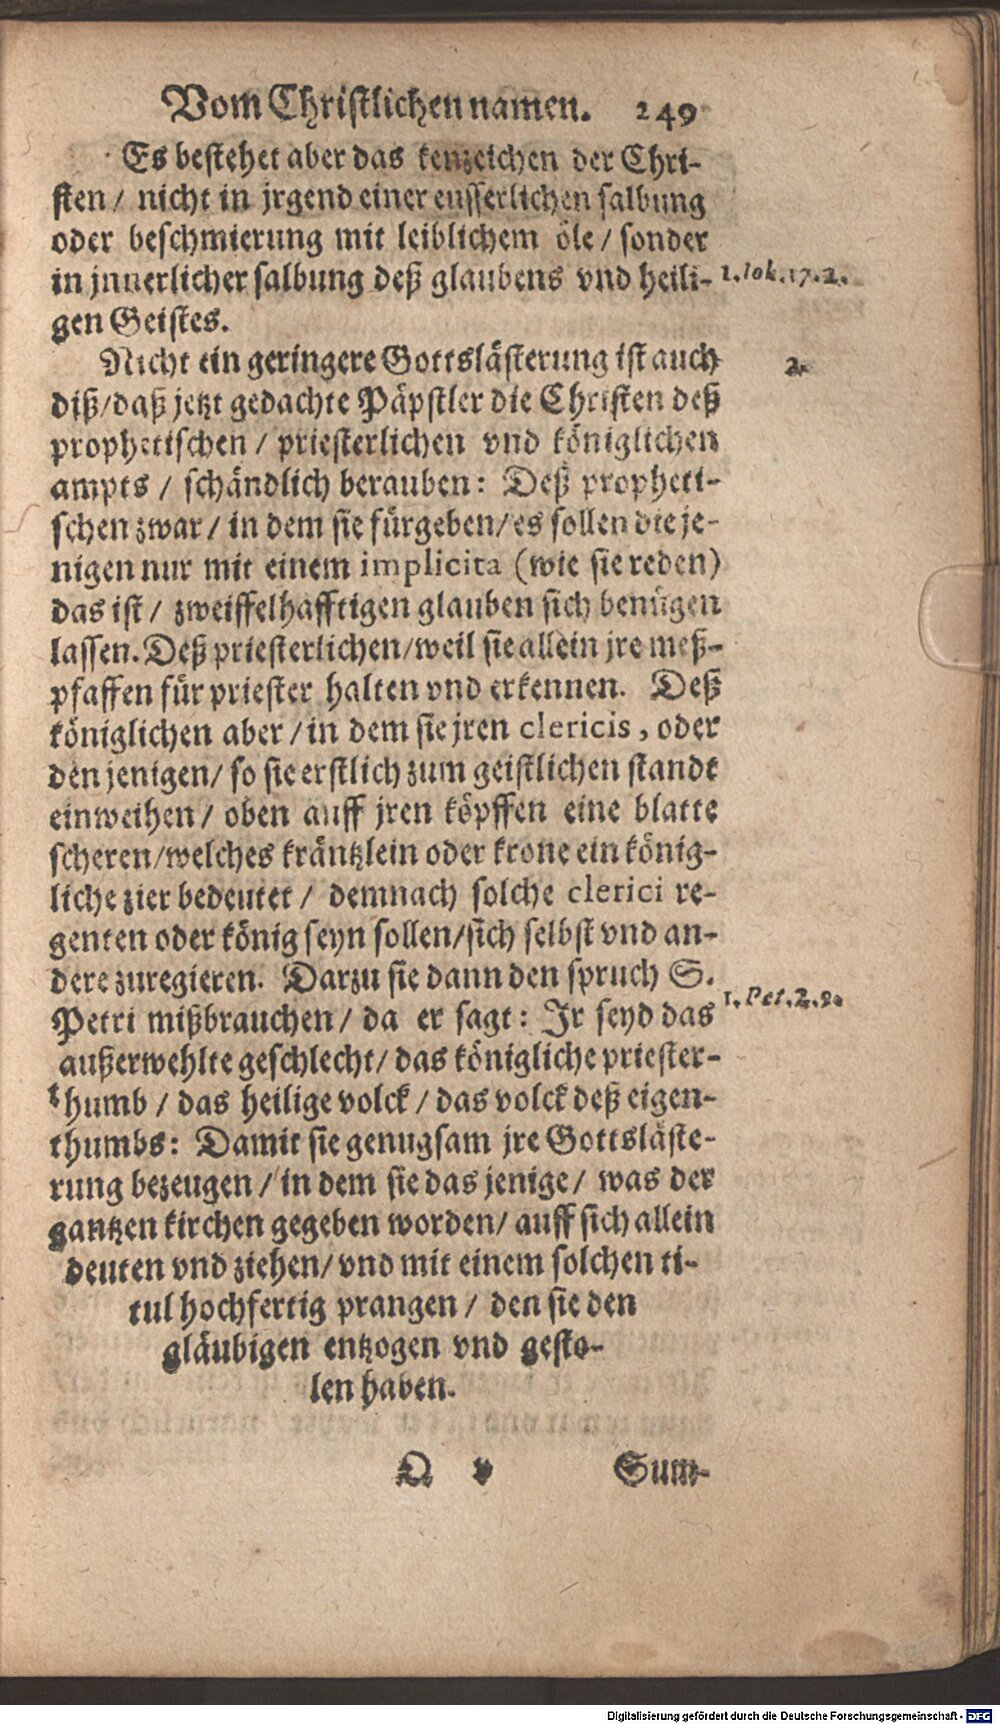 Vom Christlichen namen. 249
Es bestehet aber das kenzeichen der Chri-
sten / nicht in jrgend einer eusserlichen salbung
oder beschmierung mit leiblichem öle / sonder
in jnnerlicher salbung deß glaubens vnd heili- 1. Ioh. 17. 2.
gen Geistes.
Nicht ein geringere Gottslästerung ist auch 2.
diß/daß jetzt gedachte Päpstler die Christen deß
prophetischen / priesterlichen vnd königlichen
ampts / schändlich berauben: Deß propheti-
schen zwar / in dem sie fürgeben/es sollen die je-
nigen nur mit einem implicita (wie sie reden)
das ist / zweiffelhafftigen glauben sich benügen
lassen. Deß priesterlichen/weil sie allein jre meß-
pfaffen für priester halten vnd erkennen. Deß
königlichen aber / in dem sie jren clericis, oder
den jenigen/ so sie erstlich zum geistlichen standt
einweihen / oben auff jren köpffen eine blatte
scheren/welches kräntzlein oder krone ein könig-
liche zier bedeutet / demnach solche clerici re-
genten oder könig seyn sollen/sich selbst vnd an-
dere zuregieren. Darzu sie dann den spruch S.
Petri mißbrauchen / da er sagt: Jr seyd das 1. Pet. 2. 9.
außerwehlte geschlecht/ das königliche priester-
thumb / das heilige volck / das volck deß eigen-
thumbs: Damit sie genugsam jre Gottsläste-
rung bezeugen / in dem sie das jenige / was der
gantzen kirchen gegeben worden/ auff sich allein
deuten vnd ziehen/ vnd mit einem solchen ti-
tul hochfertig prangen / den sie den
gläubigen entzogen vnd gesto-
len haben.
Q v Sum-
Digitalisierung gefördert durch die Deutsche Forschungsgemeinschaft - DFG